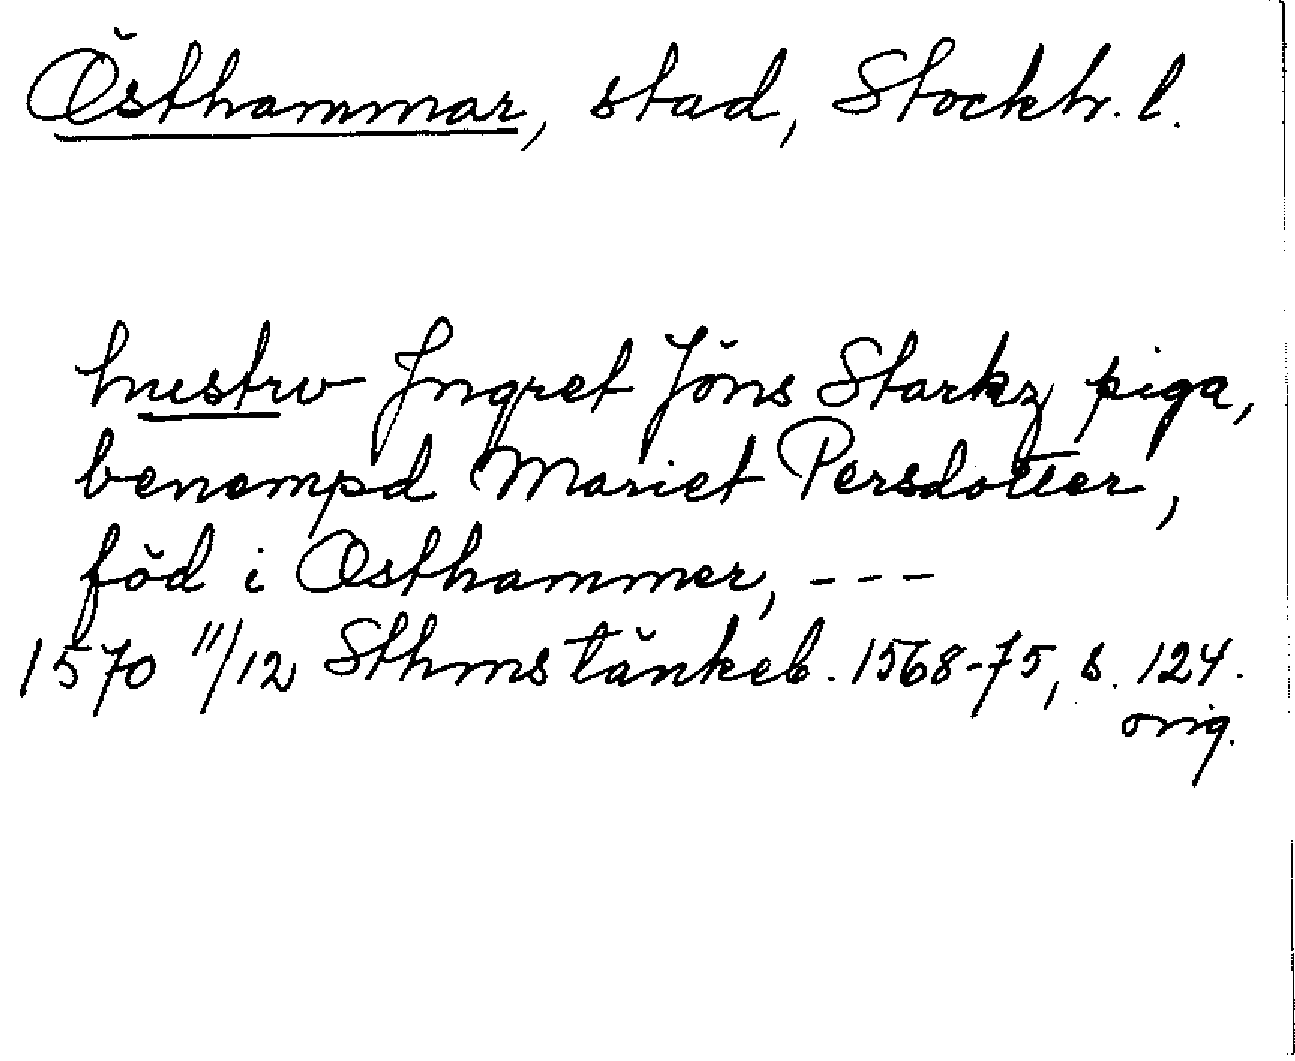 Östhammar, stad, Stockh. l.
hustrv Jngret Jöns Starkz piga,
benempd Mariet Persdotter,
föd i Osthammer, ---
1570 11/12 Sthms tänkeb. 1568-75, s. 124.
orig.